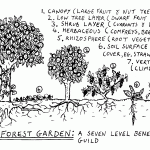 1. CANOPY (LARGE FRUIT & NUT TREES
2. LOW TREE LAYER (DWARF FRUIT
3. SHRUB LAYER (CURRANTS &
4. HERBACEOUS (COMFREYS, BEE
5. RHIZOSPHERE (ROOT VEGET
6. SOIL SURFACE
COVER, EG, STRAW
7. VERT
(CLIM
FOREST GARDEN: A SEVEN LEVEL BENE
GUILD